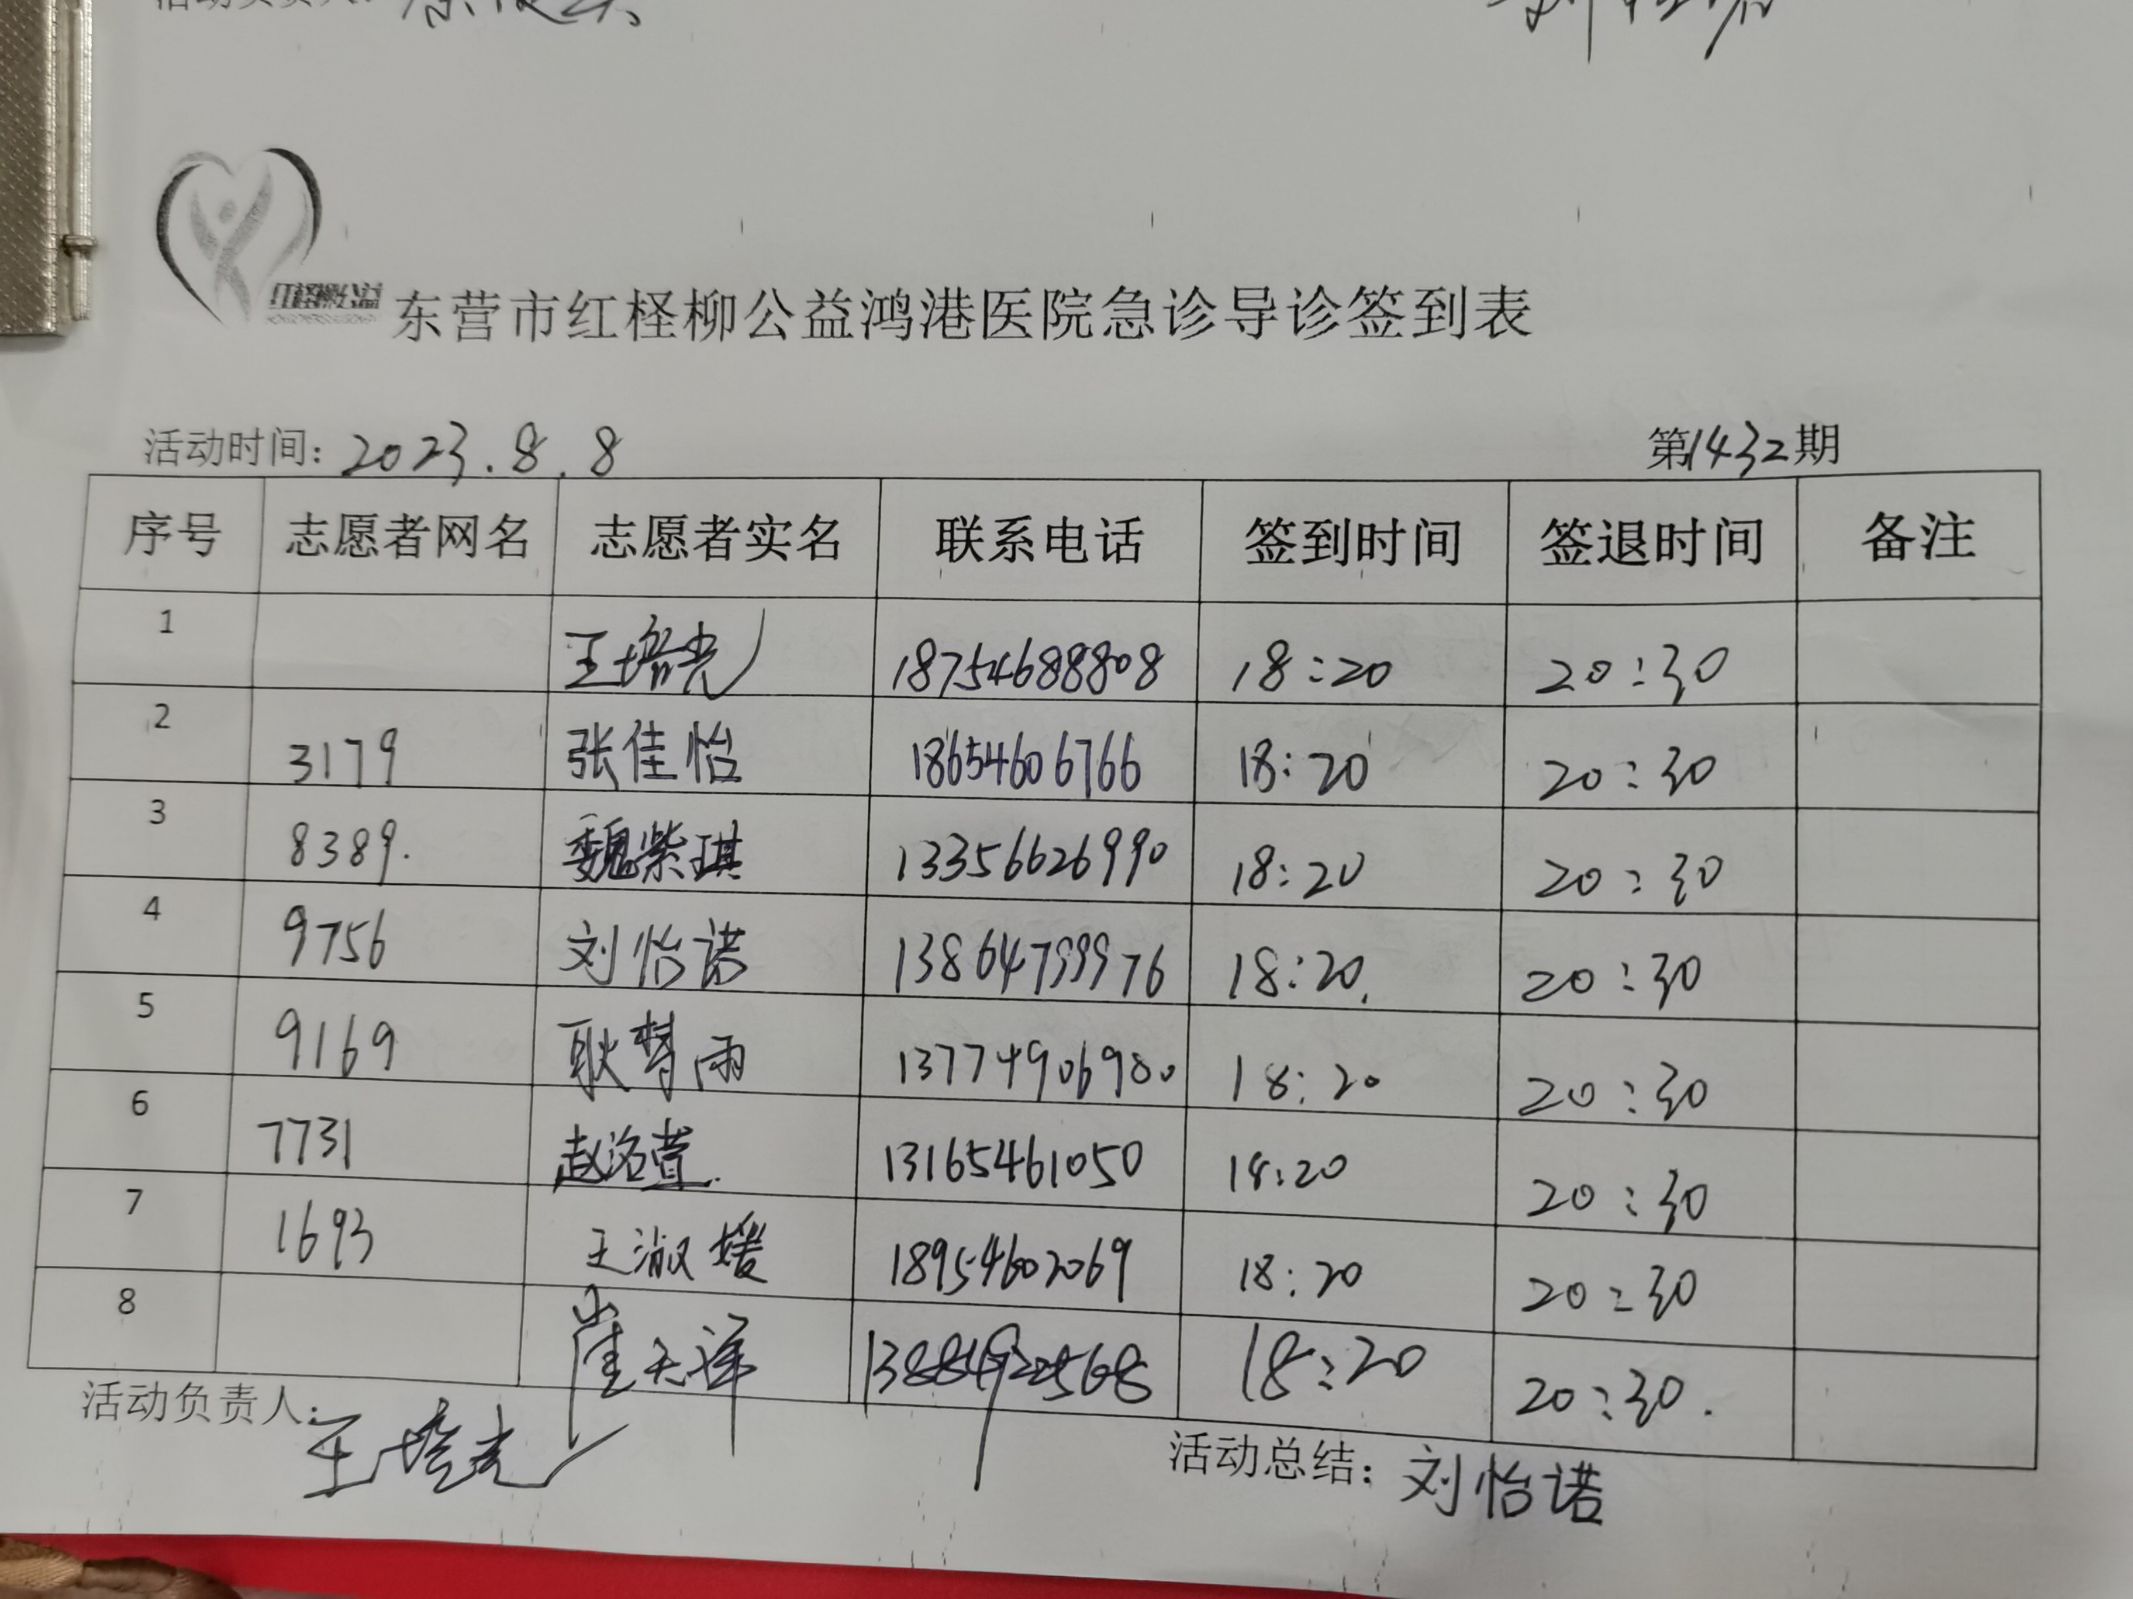 活动负责人:
红柽柳公益
东营市红柽柳公益鸿港医院急诊导诊签到表
活动时间: 2023.8.8 第1432期
序号 志愿者网名 志愿者实名 联系电话 签到时间 签退时间 备注
1 王培光 18754688808 18:20 20:30
2 3179 张佳怡 18654606766 18:20 20:30
3 8389. 魏紫琪 13356626990 18:20 20:30
4 9756 刘怡诺 13864799976 18:20. 20:30
5 9169 耿梦雨 13774906980 18:20 20:30
6 7731 赵洺萱. 13165461050 18:20 20:30
7 1693 王淑媛 18954602069 18:20 20:30
8 崔天泽 18:20 20:30.
活动负责人: 王培光
活动总结: 刘怡诺